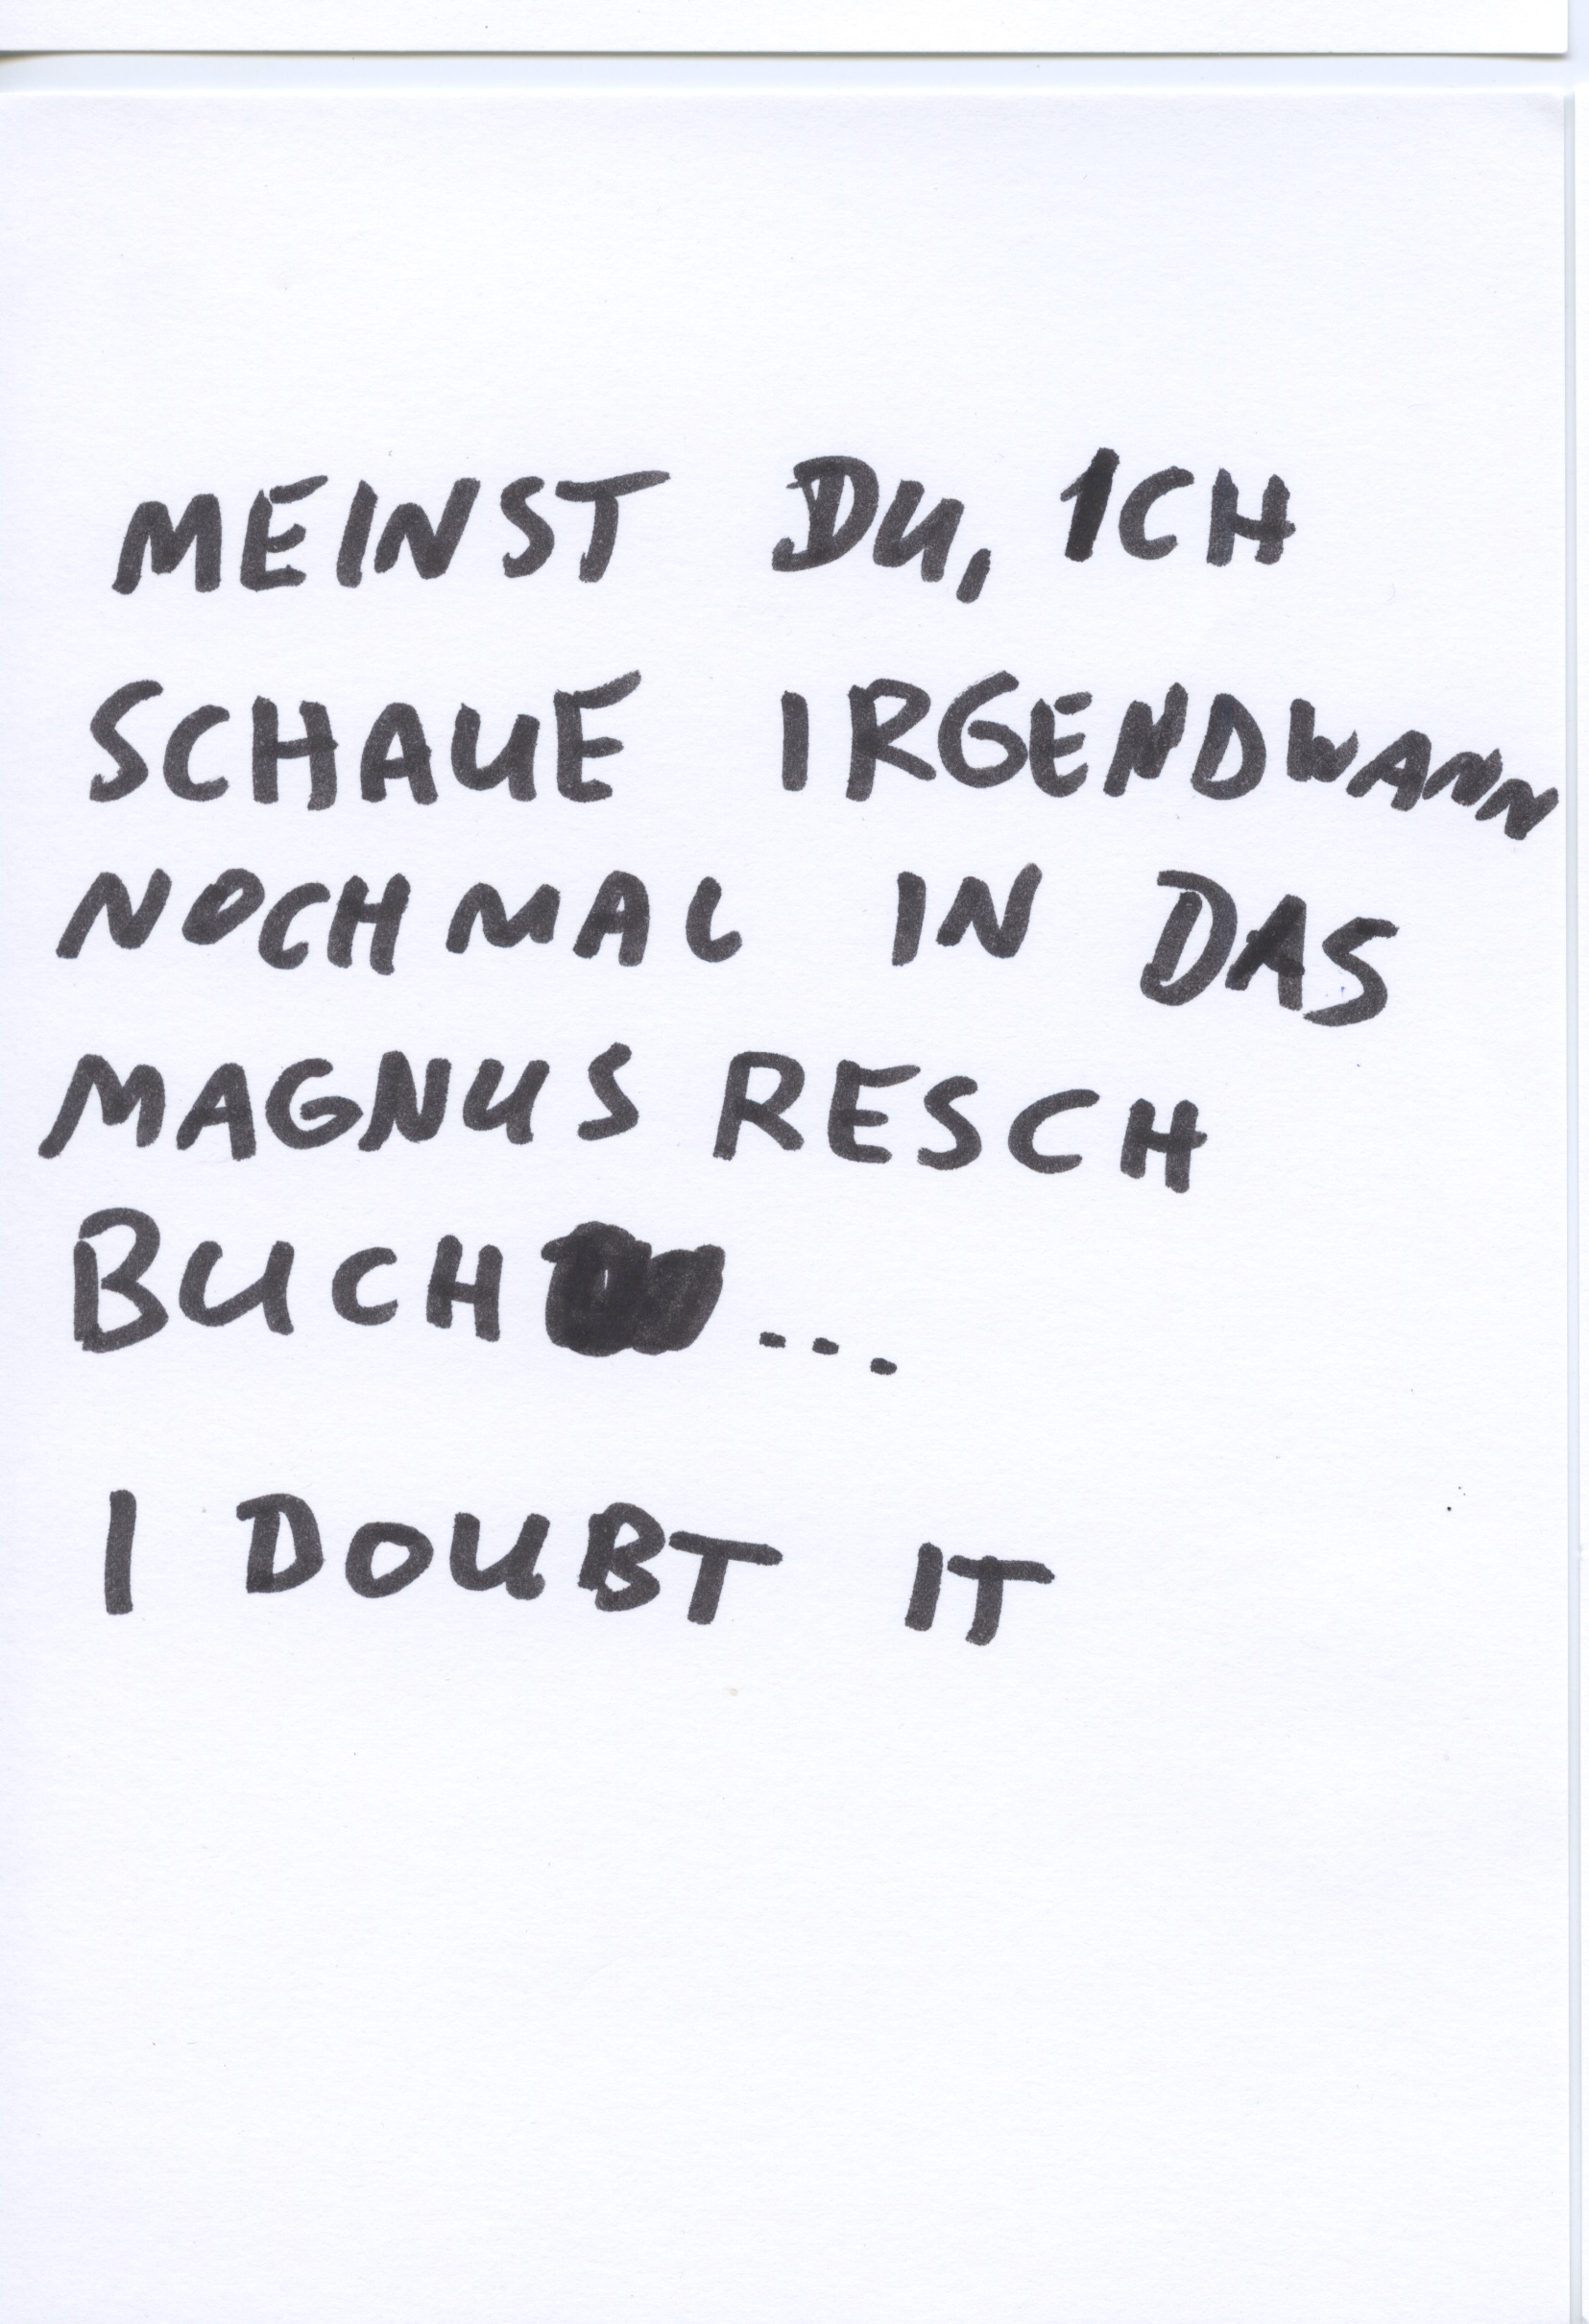 MEINST DU, ICH
SCHAUE IRGENDWANN
NOCHMAL IN DAS
MAGNUS RESCH
BUCH ...
I DOUBT IT